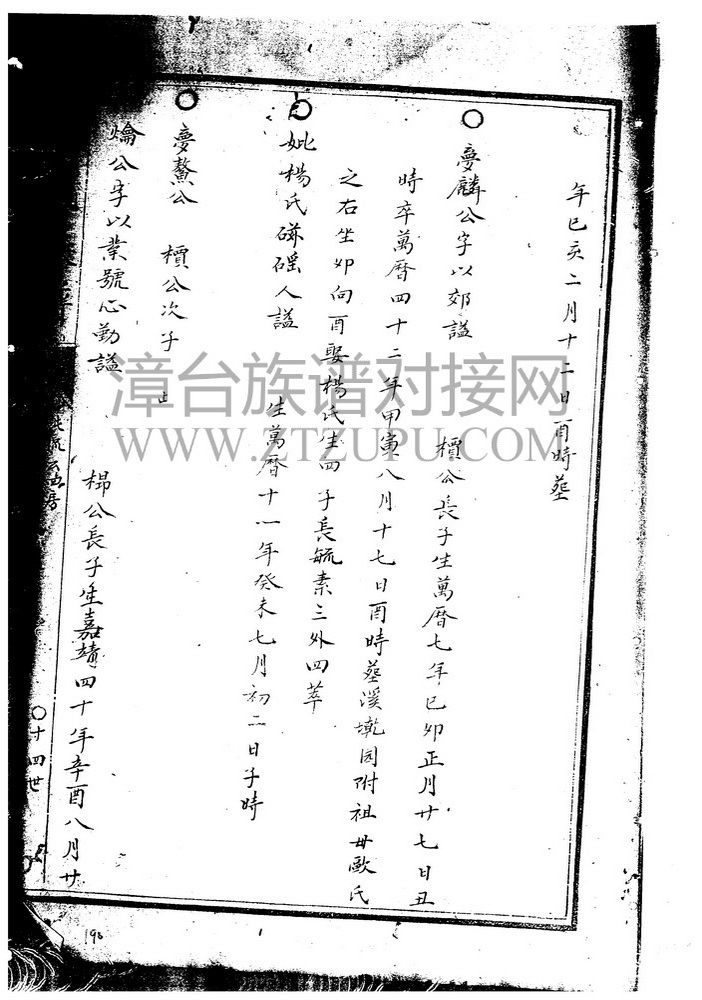 年己亥二月十二日酉時塟
夢麟公字以郊謚
櫝公長子生萬曆七年己卯正月廿七日丑
時卒萬曆四十二年甲寅八月十七日酉時塟溪墘园附祖毋歐氏
之右坐卯向酉娶楊氏生四子長毓素三外四萃
妣楊氏 人謚
生萬曆十一年癸未七月初二日子時
夢鰲公 櫝公次子 止
公字以業號心勤謚
公長子生嘉靖四十年辛酉八月廿
十四世
漳台族谱对接网
WWW.ZTZUPU.COM